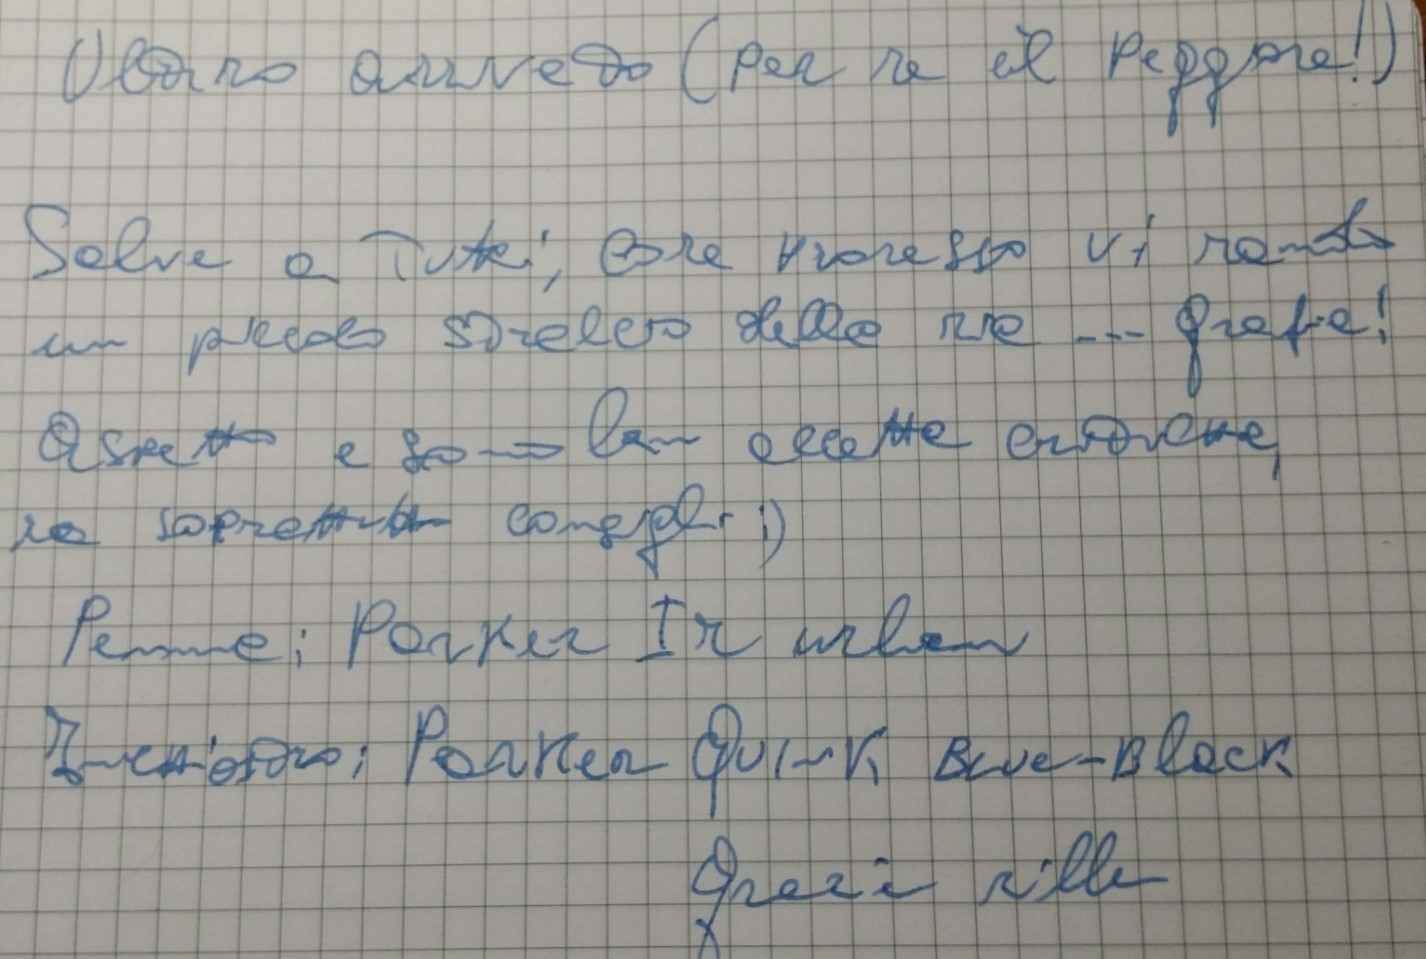 Ultimo arrivato (per ra il peggiore!)
Salve a Tutti, come promesso vi mando
un piccolo stralcio della mia --- grafia!
Aspetto e sono ben accette critiche,
ma soprattutto consigli :)
Penna: Parker Im urban
Inchiostro: Parker Quink Blue-Black
Grazie mille